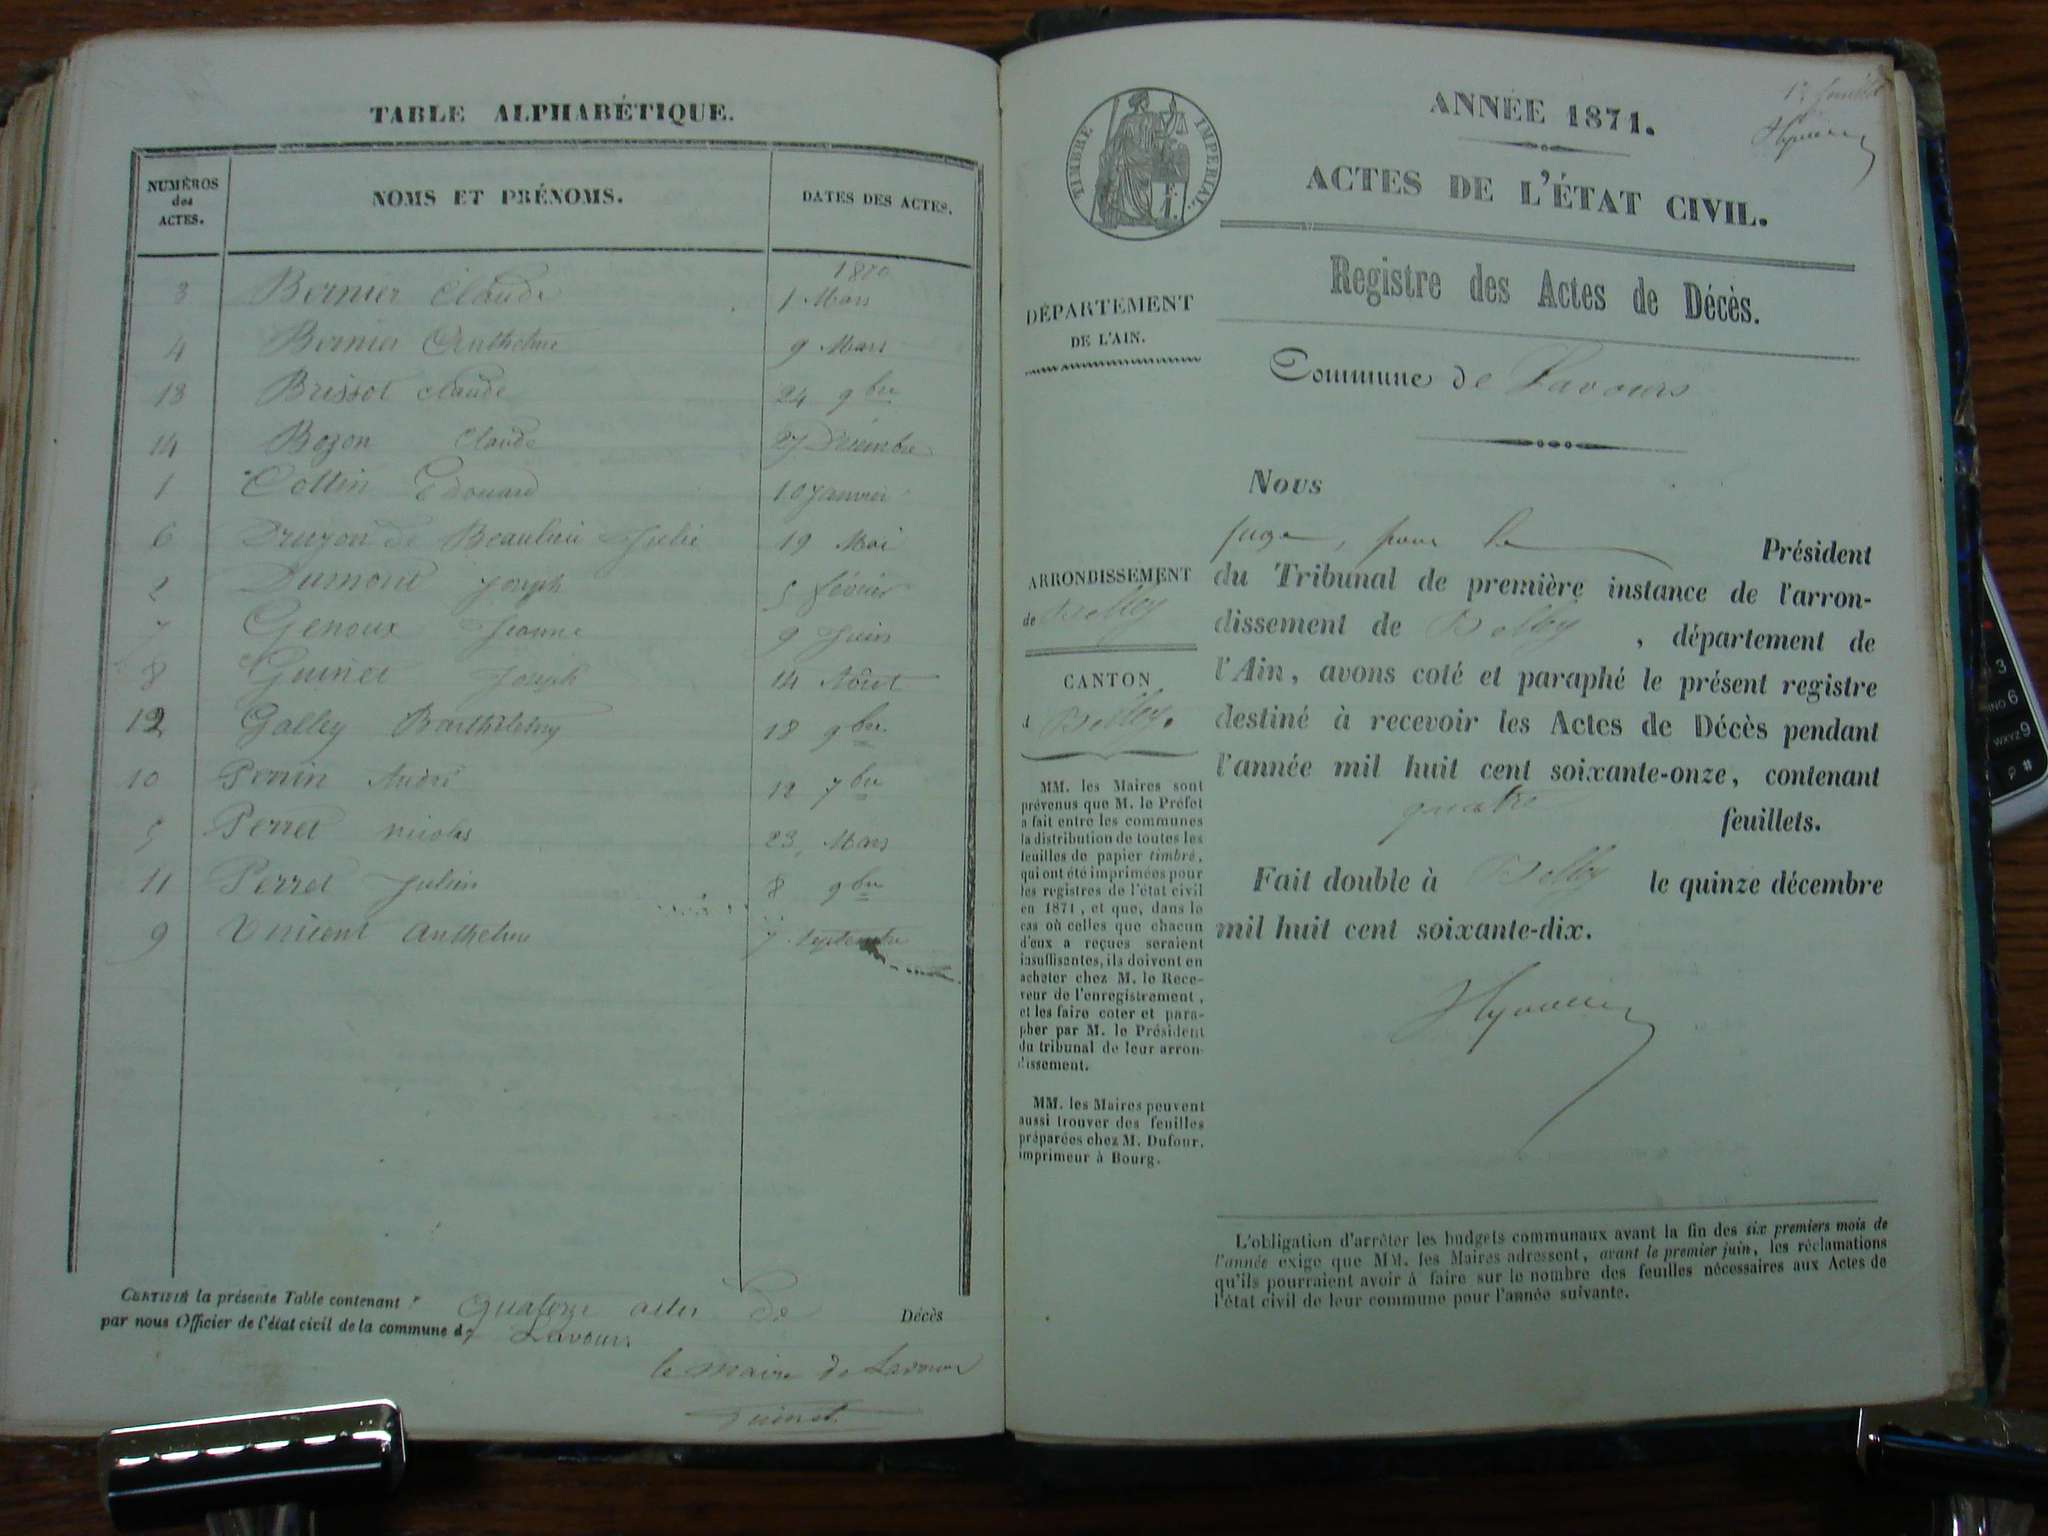 TABLE ALPHABÉTIQUE.
NUMÉROS des ACTES. NOMS ET PRÉNOMS. DATES DES ACTES.
1870
3 Bernier Claude 1 Mars
4 Bernier Anthelme 9 Mars
13 Brissot Claude 24 9bre
14 Bozon Claude 27 Décembre
1 Collin Edouard 10 Janvier
6 Druzon de Beaulieu Julie 19 Mai
2 Dumont Joseph 5 février
7 Genoux Jeanne 9 Juin
8 Guinet Joseph 14 Aout
12 Galley Barthélemy 18 9bre
10 Perrin André 12 7bre
5 Perret Nicolas 23 Mars
11 Perret Julien 8 9bre
9 Vincent Anthelme 7 Septembre
CERTIFIÉ la présente Table contenant quatorze actes de Décès
par nous Officier de l'état civil de la commune de Lavours
le Maire de Lavours
Guinet
TIMBRE IMPERIAL.
ANNÉE 1871.
ACTES DE L'ÉTAT CIVIL.
Registre des Actes de Décès.
DÉPARTEMENT
DE L'AIN.
Commune de Lavours
ARRONDISSEMENT
de Belley
CANTON
d Belley.
MM. les Maires sont
prévenus que M. le Préfet
a fait entre les communes
la distribution de toutes les
feuilles de papier timbré,
qui ont été imprimées pour
les registres de l'état civil
en 1871, et que, dans le
cas où celles que chacun
d'eux a reçues seraient
insuffisantes, ils doivent en
acheter chez M. le Rece-
veur de l'enregistrement,
et les faire coter et para-
pher par M. le Président
du tribunal de leur arron-
dissement.
MM. les Maires peuvent
aussi trouver des feuilles
préparées chez M. Dufour,
imprimeur à Bourg.
Nous
juge, pour le Président
du Tribunal de première instance de l'arron-
dissement de Belley, département de
l'Ain, avons coté et paraphé le présent registre
destiné à recevoir les Actes de Décès pendant
l'année mil huit cent soixante-onze, contenant
quatre feuillets.
Fait double à Belley le quinze décembre
mil huit cent soixante-dix.
L'obligation d'arrêter les budgets communaux avant la fin des six premiers mois de
l'année exige que MM. les Maires adressent, avant le premier juin, les réclamations
qu'ils pourraient avoir à faire sur le nombre des feuilles nécessaires aux Actes de
l'état civil de leur commune pour l'année suivante.